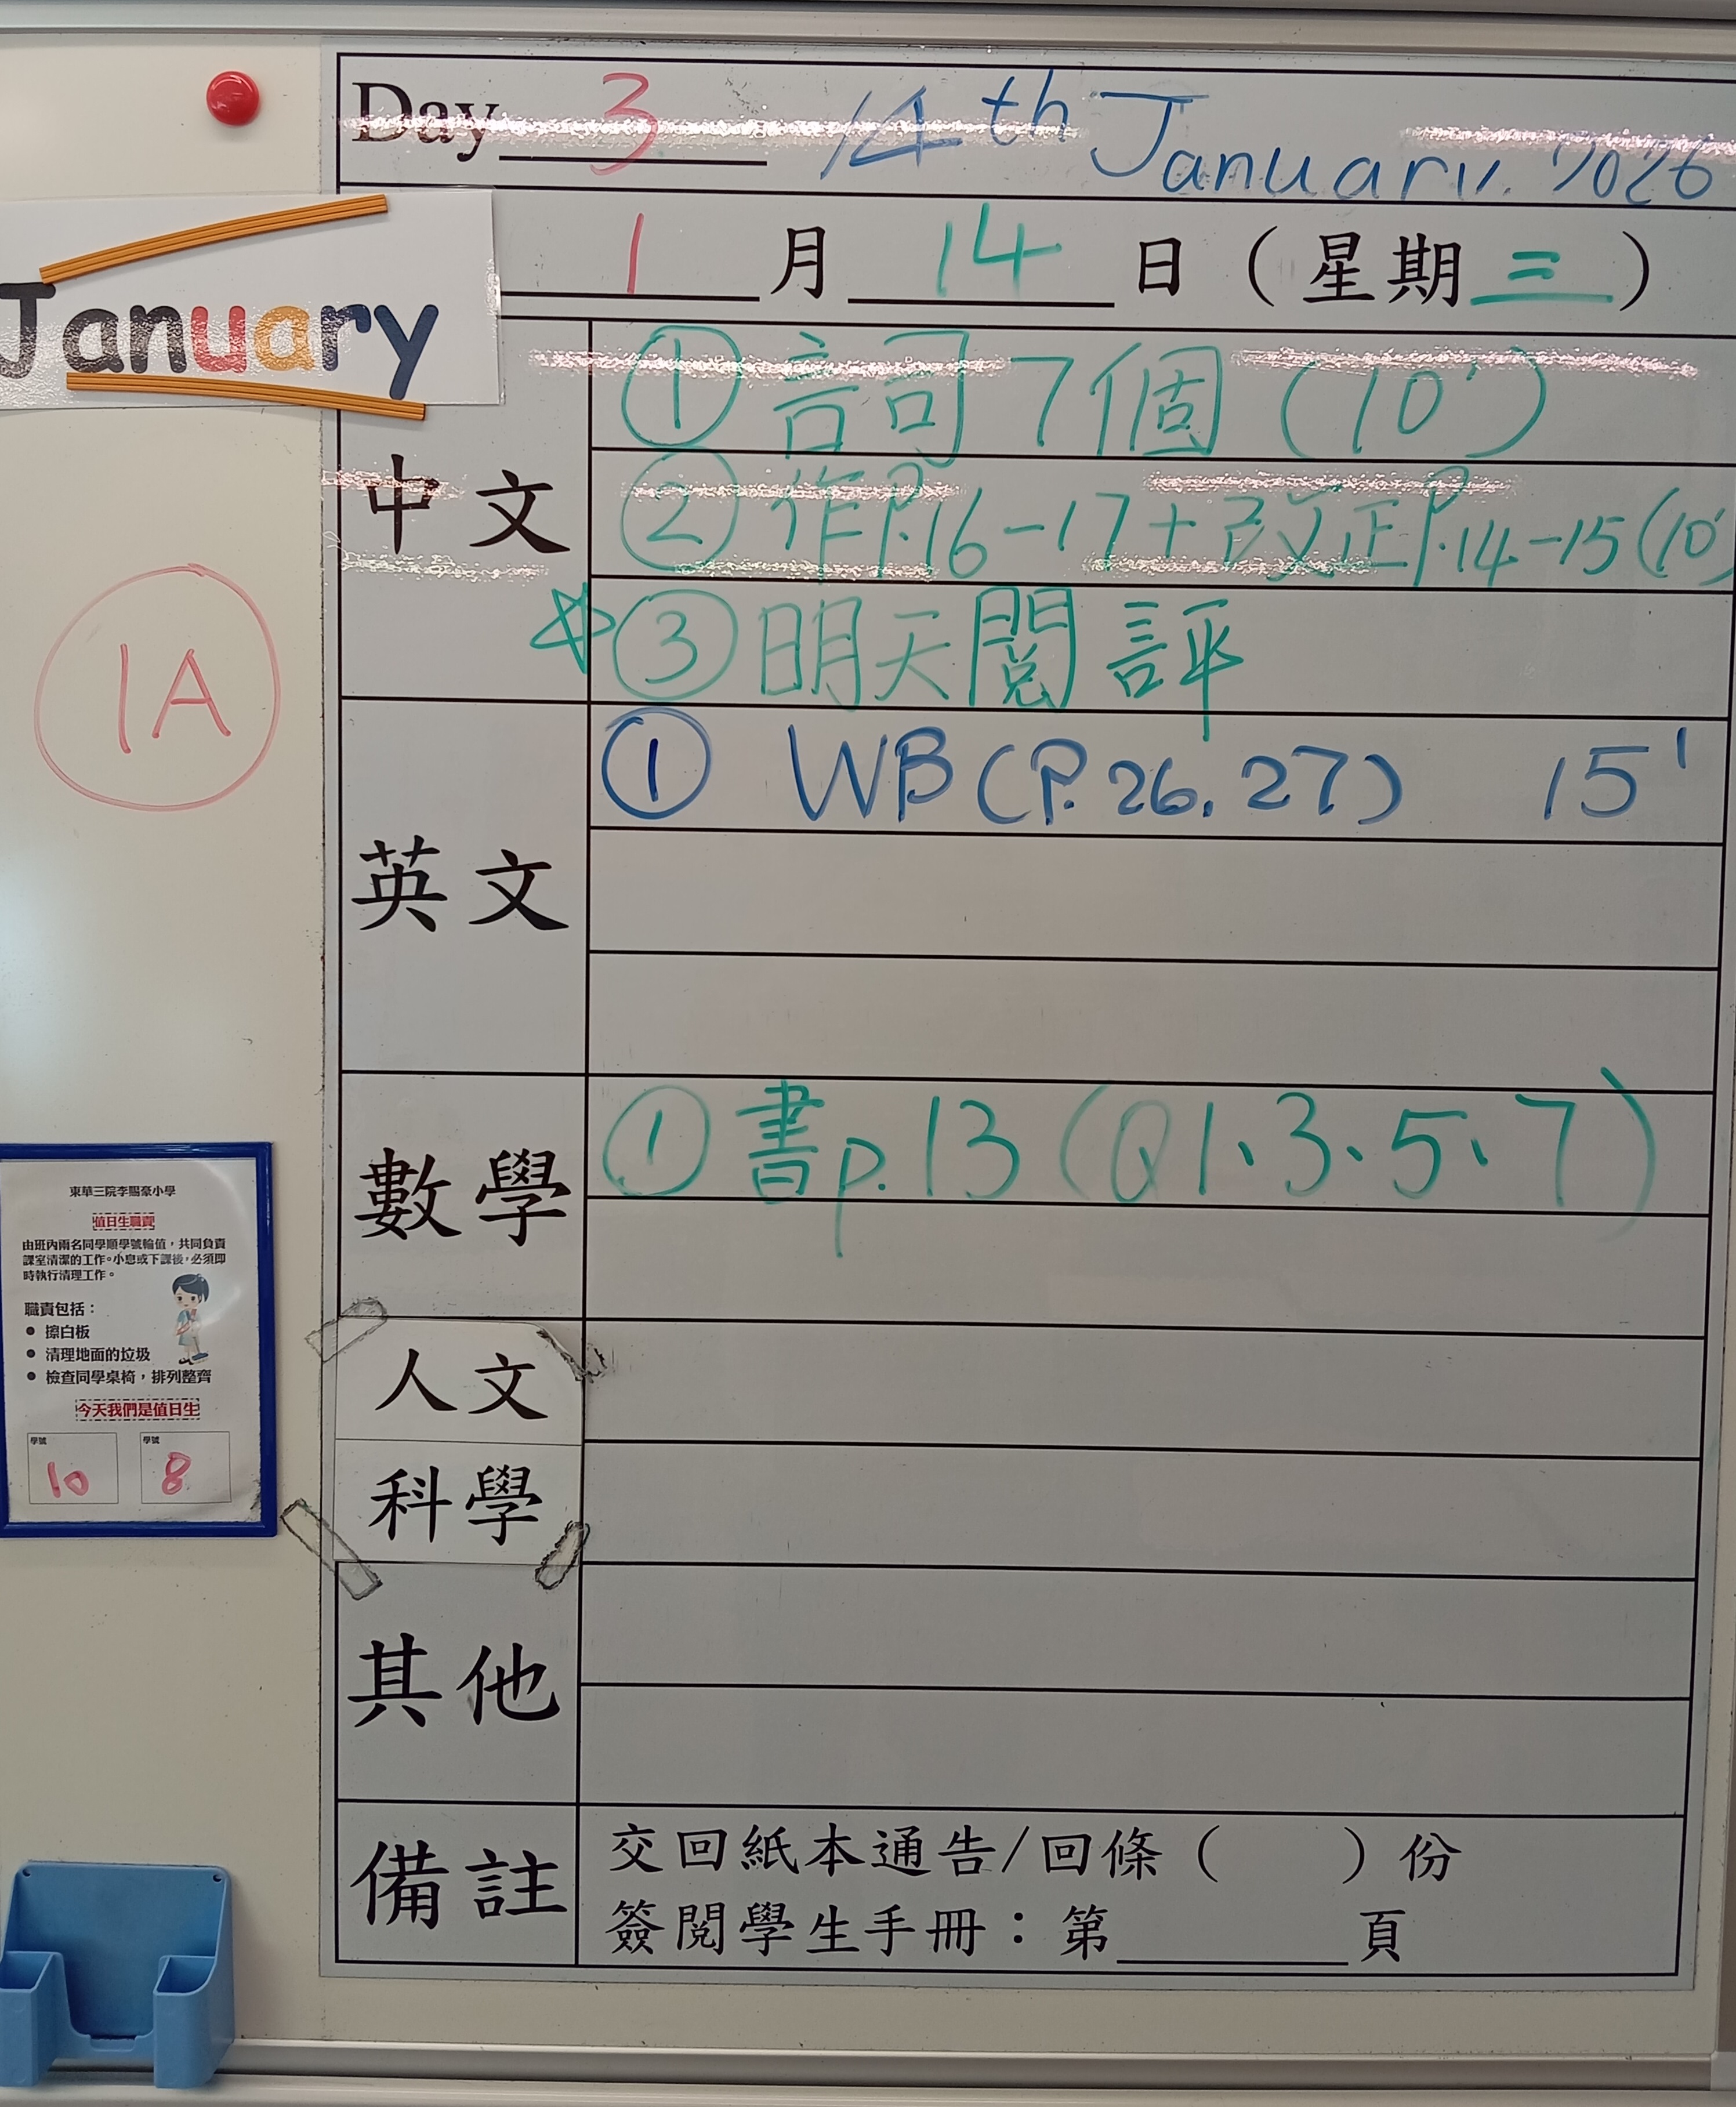 Day 3 14th January, 2026
January
1 月 14 日 (星期三)
中文
① 詞 7個 (10')
② 作P.16-17+改正P.14-15(10')
☆③ 明天閱評
1A
英文
① WB (P. 26, 27) 15'
數學
① 書p.13 (Q1、3、5、7)
人文
科學
其他
備註
交回紙本通告/回條 ( ) 份
簽閱學生手冊：第______頁
東華三院李賜豪小學
值日生職責
由班內兩名同學順學號輪值，共同負責
課室清潔的工作。小息或下課後，必須即
時執行清理工作。
職責包括：
● 擦白板
● 清理地面的垃圾
● 檢查同學桌椅，排列整齊
今天我們是值日生
學號 學號
10 8